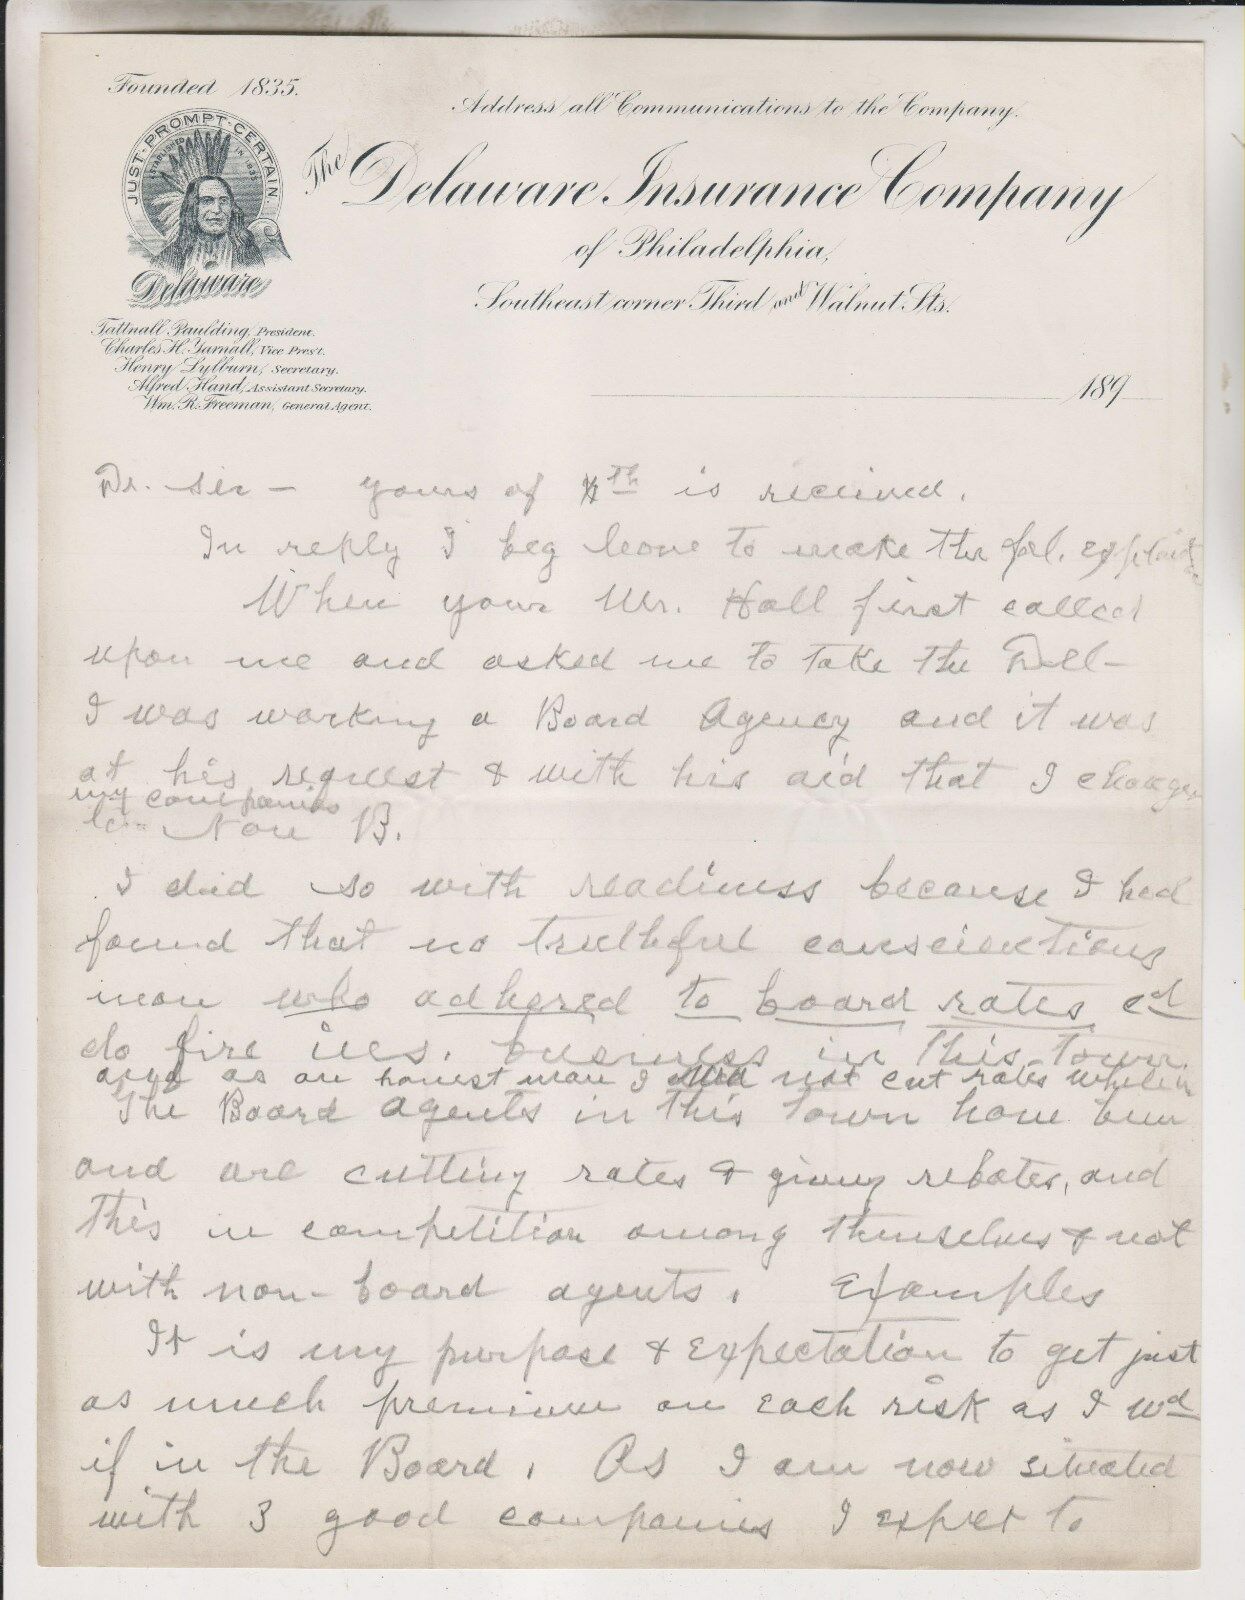 Founded 1835.
JUST·PROMPT·CERTAIN.
ESTABLISHED IN 1835
Delaware
Address all Communications to the Company.
The Delaware Insurance Company
of Philadelphia,
Southeast corner Third and Walnut Sts.
Tattnall Paulding, President.
Charles H. Yarnall, Vice Pres't.
Henry Lylburn, Secretary.
Alfred Hand, Assistant Secretary.
Wm. R. Freeman, General Agent.
189
Dr. Sir — yours of th is received.
In reply I beg leave to make the fol.
When your Mr. Hall first called
upon me and asked me to take the Dell—
I was working a Board Agency and it was
at his request & with his aid that I
my companies
Non B.
I did so with readiness because I had
found that no truthful conscientious
man who adhered to board rates cd
do fire ins. business in this town.
as an honest man I not cut rates while in
The Board agents in this town have been
and are cutting rates & giving rebates, and
this in competition among themselves & not
with non-board agents. Examples
It is my purpose & expectation to get just
as much premium on each risk as I wd
if in the Board. As I am now situated
with 3 good companies I expect to